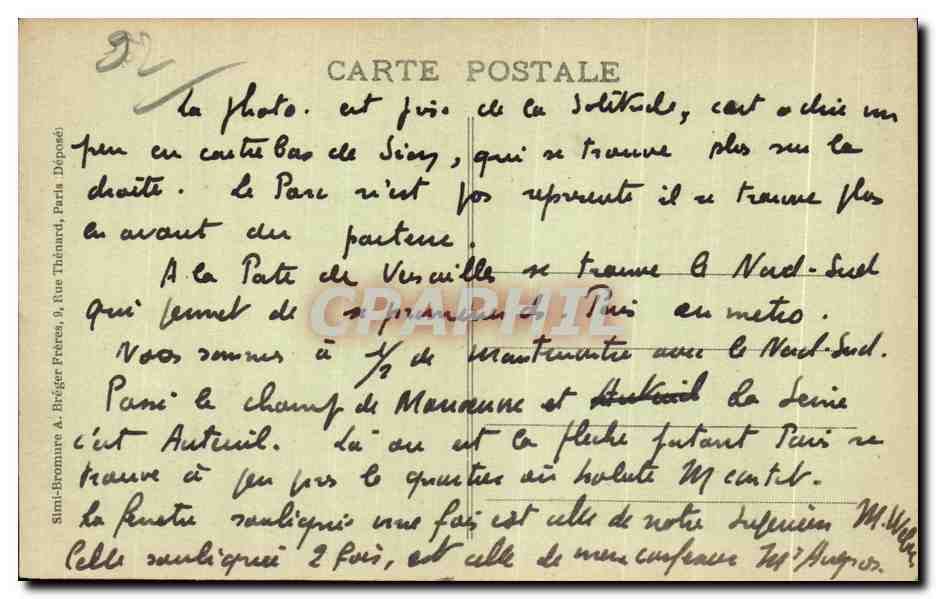 92
CARTE POSTALE
La photo. est prise de la Solitude, c'est a dire un
peu en contre bas de Sion, qui se trouve plus sur la
droite. Le Parc n'est pas represente il se trouve plus
en avant du parterre.
A la Porte de Versailles se trouve le Nord-Sud
qui permet de se promener ds. Paris en metro.
Nous sommes à 1/2 de Montmartre avec le Nord-Sud.
Passé le champ de Manœuvre et la Seine
c'est Auteuil. Là ou est la fleche partant Paris se
trouve à peu pres le quartier où habite M
La fenetre soulignée une fois est celle de notre Ingenieur M. Weber
Celle soulignée 2 fois, est celle de mon confrere Mr
Simi-Bromure A. Bréger Frères, 9, Rue Thénard, Paris (Déposé)
CPAPHIL